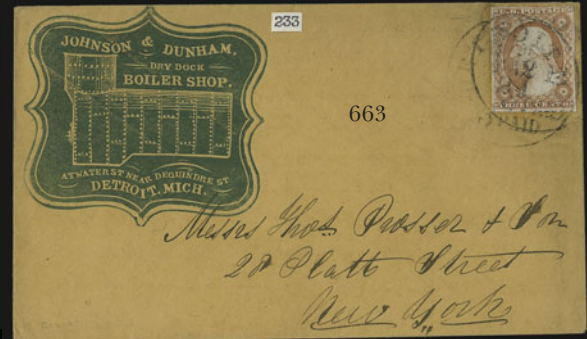 233
JOHNSON & DUNHAM,
DRY DOCK
BOILER SHOP.
ATWATER ST NEAR DEQUINDRE ST
DETROIT. MICH.
U.S. POSTAGE
THREE CENTS
PAID
663
Messrs Thos Prosser & Son
28 Platt Street
New York